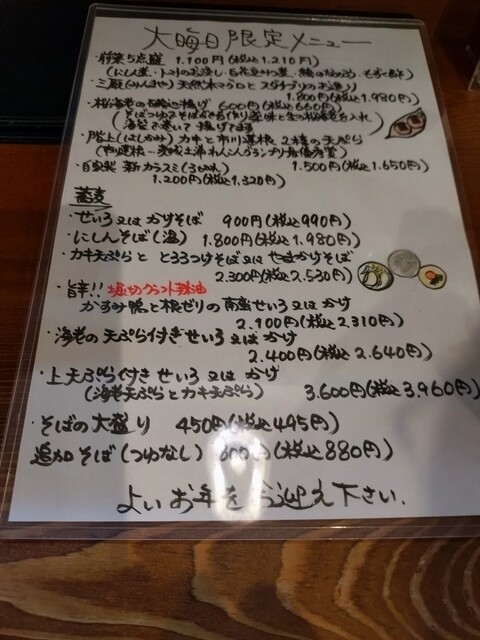 大晦日限定メニュー
・前菜5点盛 1.100円(税込1.210円)
(にしん煮・トマトのお浸し・白花豆みつ煮・
・三厩(みんまや)天然本マグロとスダチブリのお造り
1.800円(税込1.980円)
・桜海老の 揚げ 600円(税込660円)
・階上(はしかみ)カキと市川蓮根 2種の天ぷら
(市川蓮根… れんこんグランプリ最優秀賞)
1.500円(税込1.650円)
・自家製 新カラスミ(3切れ)
1.200円(税込1.320円)
蕎麦
・せいろ又はかけそば 900円(税込990円)
・にしんそば(温) 1.800円(税込1.980円)
・カキ天ぷらと とろろつけそば又はやまかけそば
2.300円(税込2.530円)
・旨辛!! クラフト辣油
かすみ鴨と根ゼリの南蛮せいろ又はかけ
2.100円(税込2.310円)
・海老の天ぷら付きせいろ又はかけ
2.400円(税込2.640円)
・上天ぷら付きせいろ又はかけ
(海老天ぷらとカキ天ぷら) 3.600円(税込3.960円)
・そばの大盛り 450円(税込495円)
追加そば(つゆなし) 800円(税込880円)
よいお年をお迎え下さい.